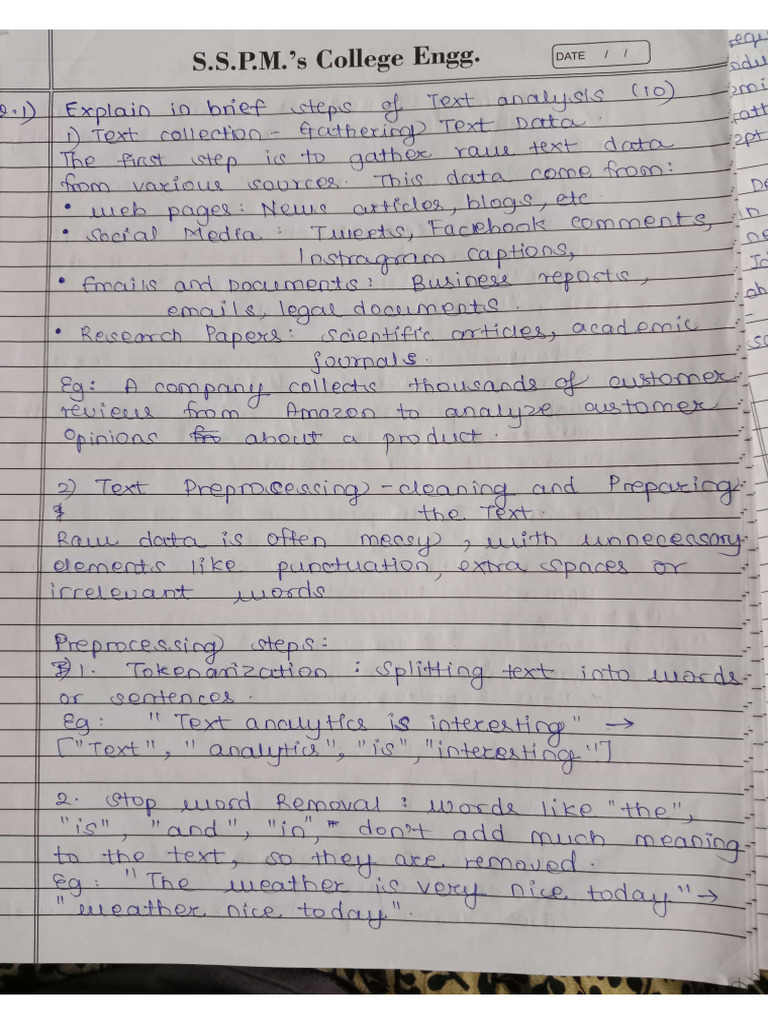 S.S.P.M.'s College Engg.
DATE / /
Q.1) Explain in brief steps of Text analysis (10)
1) Text collection - Gathering Text Data.
The first step is to gather raw text data
from various sources. This data come from:
• Web pages: News articles, blogs, etc
• Social Media: Tweets, Facebook comments,
Instragram captions,
• Emails and Documents: Business reports,
emails, legal documents.
• Research Papers: scientific articles, academic
journals.
Eg: A company collects thousands of customer
reviews from Amazon to analyze customer
opinions about a product.
2) Text Preprocessing - cleaning and Preparing
the Text.
Raw data is often messy, with unnecessary
elements like punctuation, extra spaces or
irrelevant words
Preprocessing steps:
1. Tokenarization : splitting text into words
or sentences.
Eg: "Text analytics is interesting" →
["Text", "analytics", "is", "interesting"]
2. Stop word Removal : words like "the",
"is", "and", "in", don't add much meaning
to the text, so they are removed.
Eg: "The weather is very nice today" →
"weather nice today".